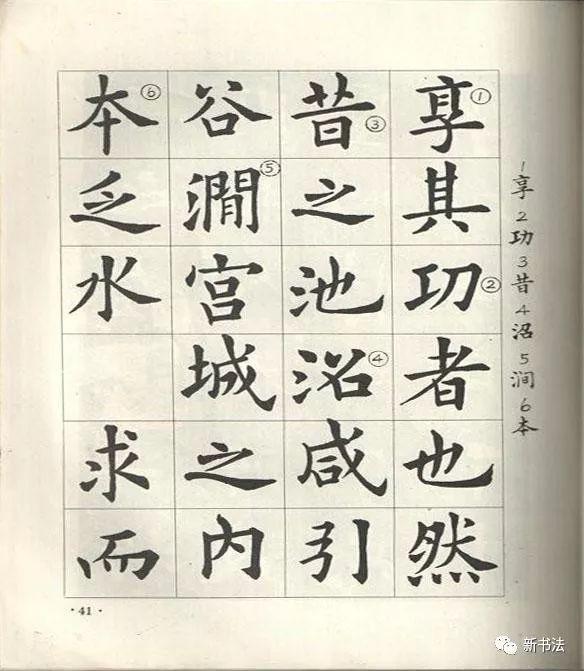 1享2功3昔4沼5涧6本
享①其功②者也然
昔③之池沼④咸引
谷澗⑤宫城之内
本⑥乏水求而
·41·
新书法